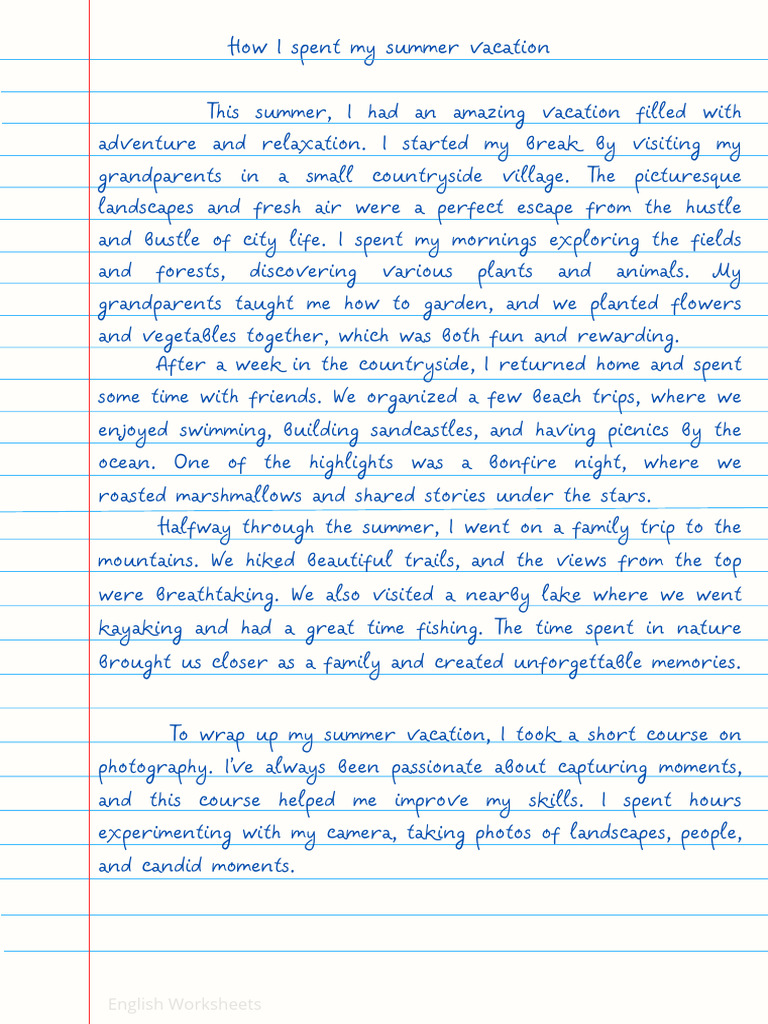 How I spent my summer vacation
This summer, I had an amazing vacation filled with
adventure and relaxation. I started my break by visiting my
grandparents in a small countryside village. The picturesque
landscapes and fresh air were a perfect escape from the hustle
and bustle of city life. I spent my mornings exploring the fields
and forests, discovering various plants and animals. My
grandparents taught me how to garden, and we planted flowers
and vegetables together, which was both fun and rewarding.
After a week in the countryside, I returned home and spent
some time with friends. We organized a few beach trips, where we
enjoyed swimming, building sandcastles, and having picnics by the
ocean. One of the highlights was a bonfire night, where we
roasted marshmallows and shared stories under the stars.
Halfway through the summer, I went on a family trip to the
mountains. We hiked beautiful trails, and the views from the top
were breathtaking. We also visited a nearby lake where we went
kayaking and had a great time fishing. The time spent in nature
brought us closer as a family and created unforgettable memories.
To wrap up my summer vacation, I took a short course on
photography. I've always been passionate about capturing moments,
and this course helped me improve my skills. I spent hours
experimenting with my camera, taking photos of landscapes, people,
and candid moments.
English Worksheets